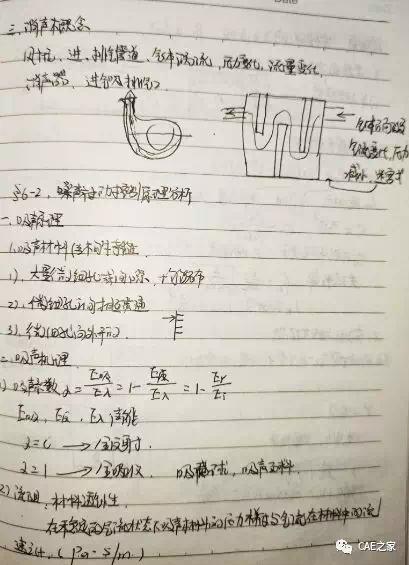 三、消声器概念
风机、进、排气管道、气体涡流、压力变化、流量变化、
消声器、进气口排气口
气体
气流变化,压力
减小
§6-2、噪声主动控制原理分析
一、吸声原理
1.吸声材料结构特征
1)、大量的细孔或间隙、均匀分布
2)、微细孔间相互贯通
3)、微细孔向外开口
二、吸声机理
1)吸声系数 α = E吸/E入 = 1 - E反/E入 = 1 - Er/Ei
E吸、E反、E入声能
α = 0 → 全反射
α = 1 → 全吸收 吸声材料.
2)流阻、材料透气性
在稳定的气流状态下吸声材料中的压力梯度与气流在材料中的流
速之比、(Pa·s/m)
CAE之家